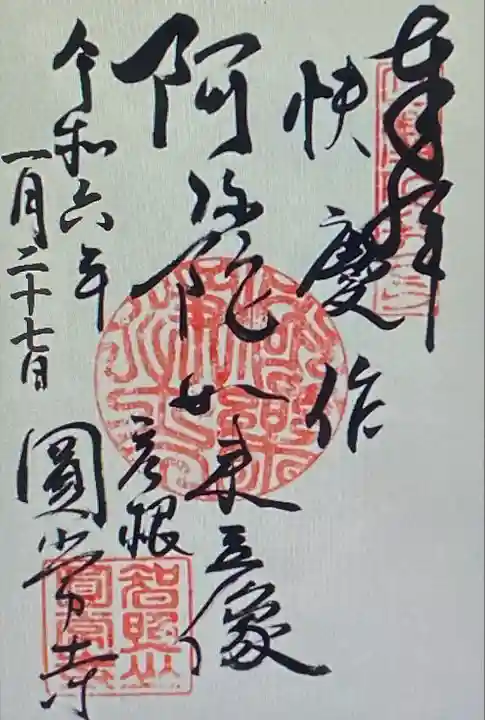 奉拝
快慶作
阿弥陀如来立像
彦根
圓常寺
令和六年
一月二十七日
智照山
圓常寺